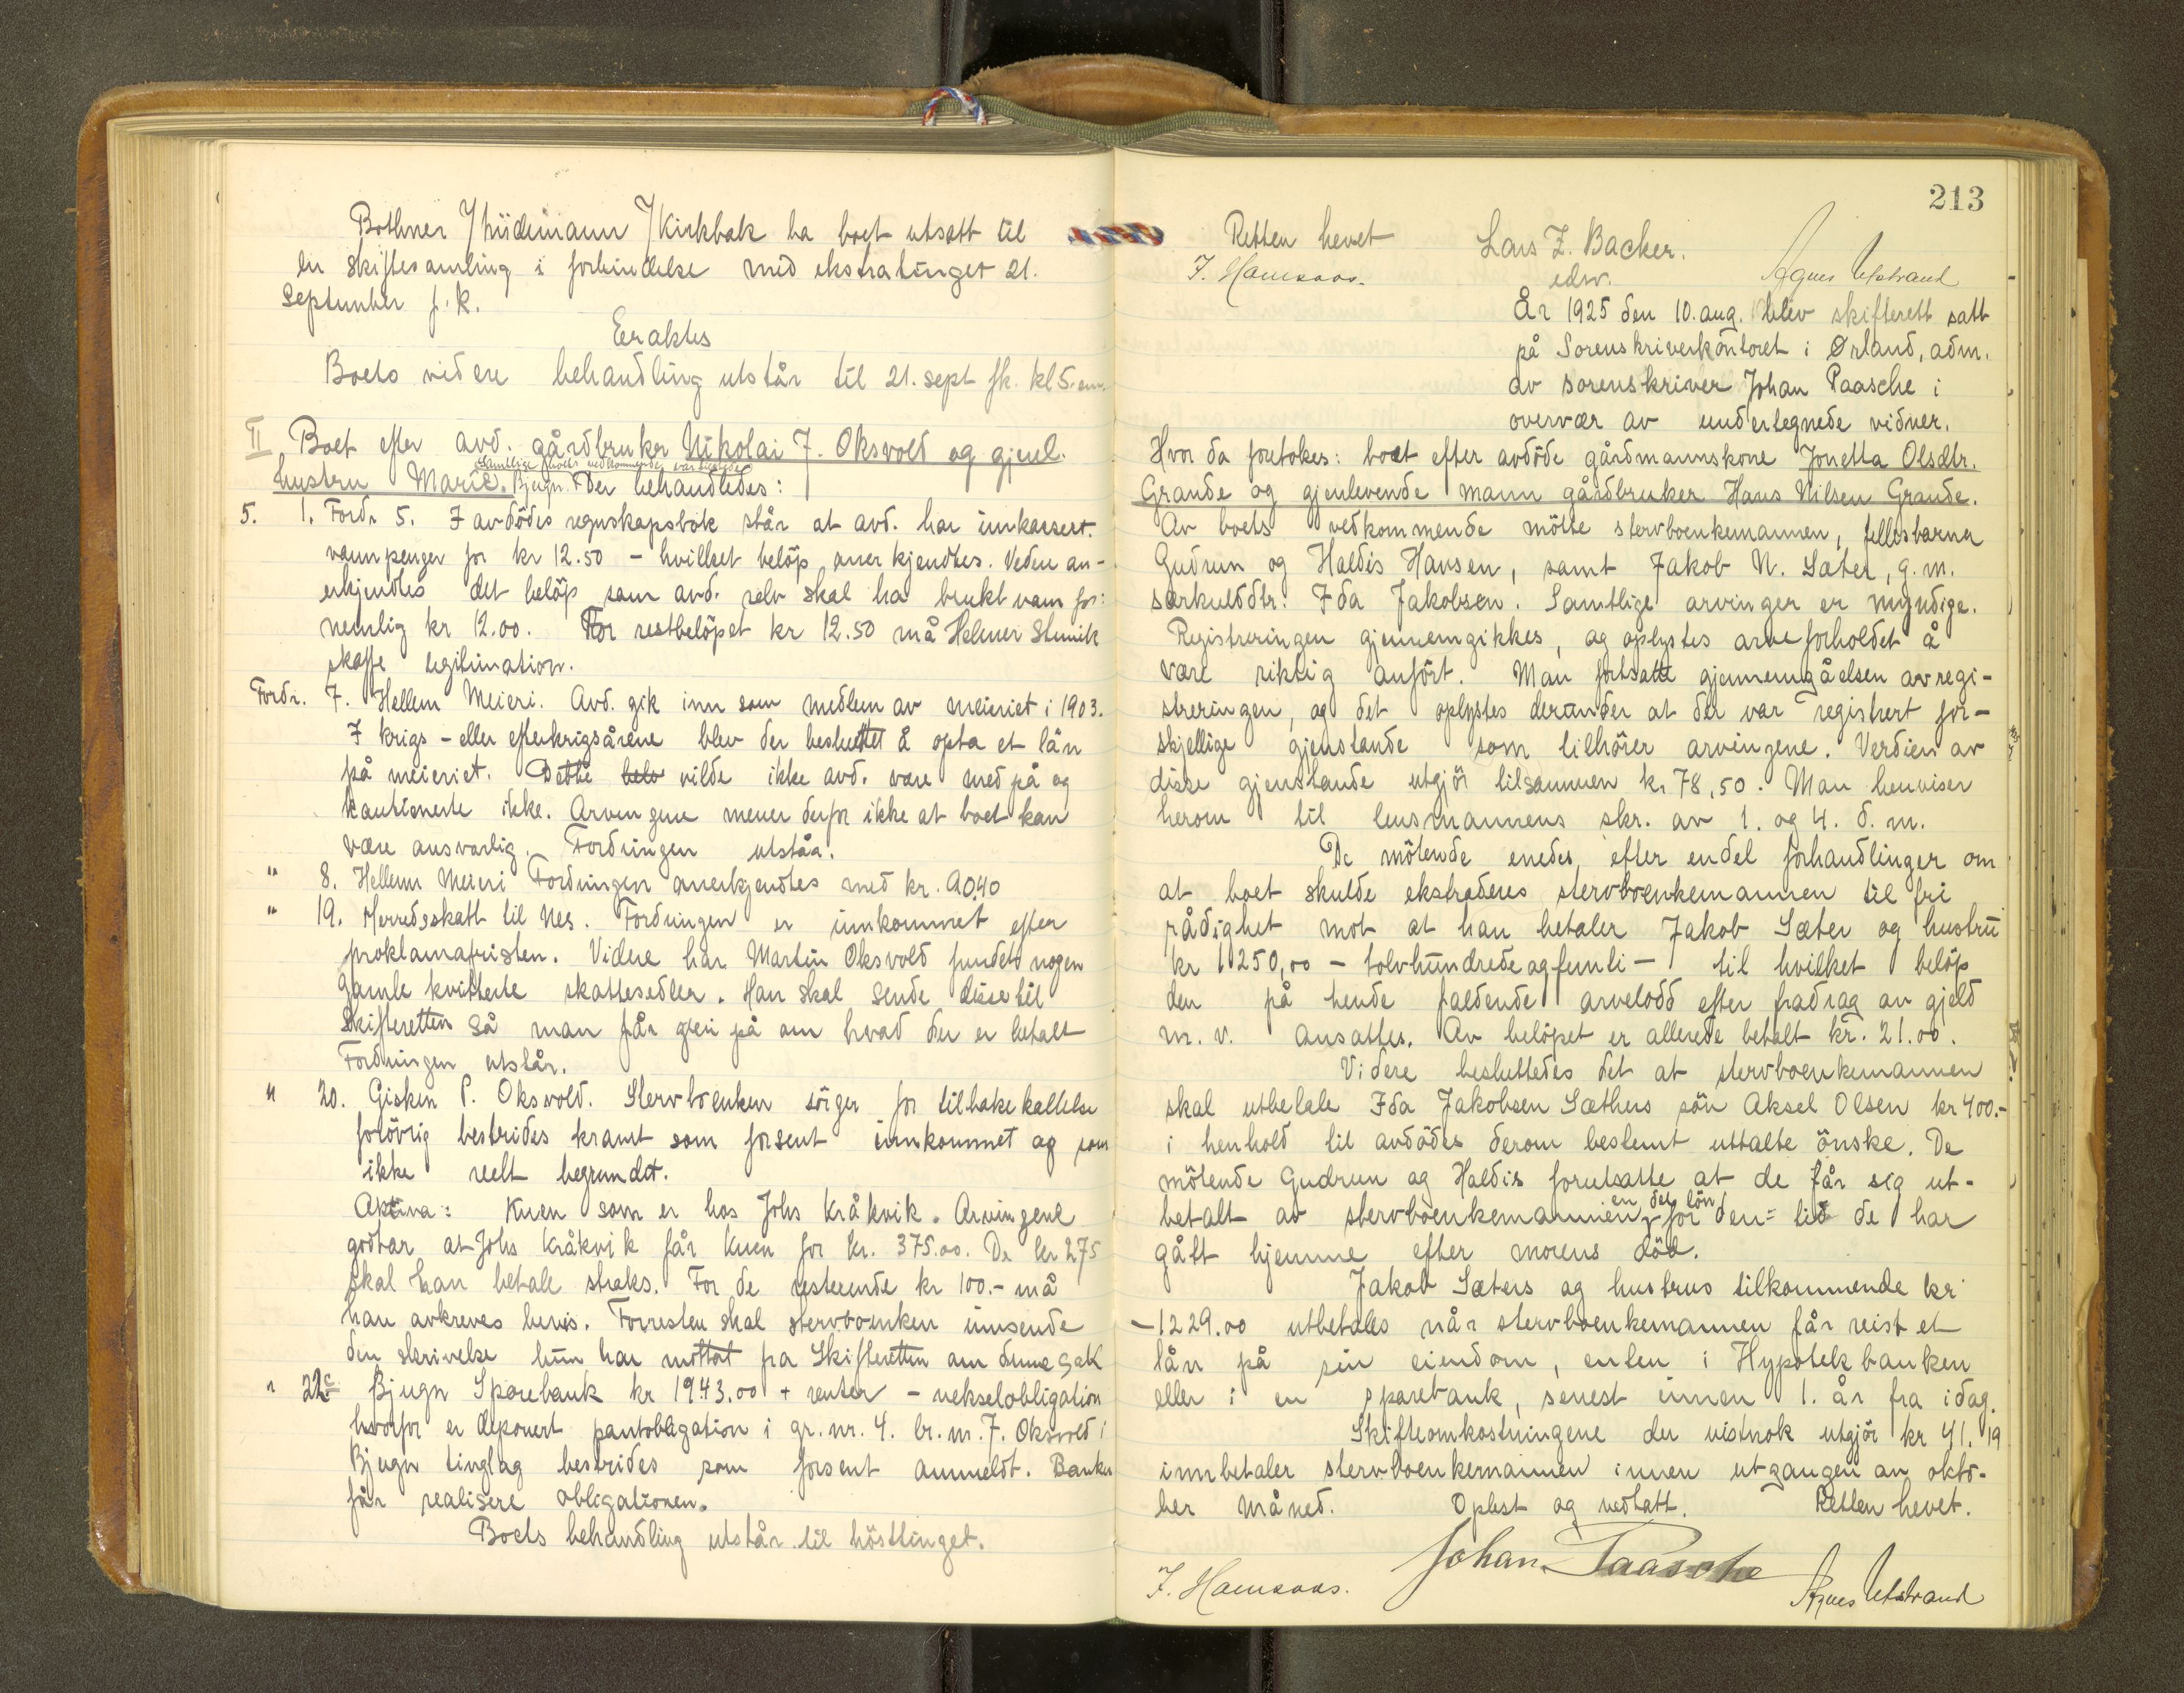 Bothner Hüdemann Kirkbak ha boet utsatt til
en skiftesamling i forbindelse med ekstratinget 21.
September f.k.
Eraktes
Boets videre behandling utstår til 21. sept fk. kl 5. em.
II Boet efter avd. gårdbruker Nikolai J. Oksvold og gjenl.
Samtlige boets vedkommende var tilstede
hustru Marie. Bjugn. Der behandledes:
5. 1. Fordr 5. I avdödes regnskapsbok står at avd. har innkassert
vannpenger for kr 12.50 - hvilket belöp anerkjendtes. Veden an-
erkjendtes det belöp som avd. selv skal ha brukt vann for:
nemlig kr 12.00. For restbelöpet kr 12.50 må Helmer Stennik
skaffe legitimation.
Fordr. 7. Hellem Meieri. Avd. gik inn som medlem av meieriet i 1903.
I krigs- eller efterkrigsårene blev der besluttet å opta et lån
på meieriet. Dette belö vilde ikke avd. være med på og
kautionerte ikke. Arvingene mener derfor ikke at boet kan
være ansvarlig. Fordringen utstår.
" 8. Hellem Meieri Fordringen anerkjendtes med kr. 90,40
" 19. Herredsskatt til Nes. Fordringen er innkommet efter
proklamafristen. Videre har Martin Oksvold fundet nogen
gamle kvitterte skattesedler. Han skal sende disse til
Skifteretten så man får grei på om hvad der er betalt
Fordringen utstår.
" 20. Gisken P. Oksvold. Stervboenken sörger for tilbakekallelse
forövrig bestrides kravet som forsent innkommet og som
ikke reelt begrundet.
Aktiva: Kuen som er hos Johs Kråkvik. Arvingene
godtar at Johs Kråkvik får kuen for kr. 375.00. De kr 275
skal han betale straks. For de resterende kr 100.- må
han avkreves bevis. Forresten skal stervboenken innsende
den skrivelse hun har mottat fra Skifteretten om denne sak
" 22c Bjugn Sparebank kr 1943.00 + renter - vekselobligation
hvorfor er deponert pantobligation i gr. nr. 4. br. nr. 7. Oksvold i
Bjugn tinglag bestrides som forsent anmeldt. Banken
får realisere obligationen.
Boets behandling utstår til hösttinget.
213
Retten hevet
Lars Z. Backer.
edsv.
J. Hamsaas.
Agnes Utstrand
År 1925 den 10. aug. blev skifterett satt
på Sorenskriverkontoret i Ørland, adm.
av sorenskriver Johan Paasche i
overvær av undertegnede vidner.
Hvor da foretokes: boet efter avdöde gårdmannskone Jonetta Olsdtr.
Grande og gjenlevende mann gårdbruker Hans Nilsen Grande.
Av boets vedkommende mötte stervboenkemannen, fellesbarna
Gudrun og Haldis Hansen, samt Jakob N. Sæter, g. m.
særkulddtr: Ida Jakobsen. Samtlige arvinger er myndige.
Registreringen gjennemgikkes, og oplystes arveforholdet å
være riktig anfört. Man fortsatte gjennemgåelsen av regi-
streringen, og det oplystes derunder at der var registrert for-
skjellige gjenstande som tilhörer arvingene. Verdien av
disse gjenstande utgjör tilsammen kr 78,50. Man henviser
herom til lensmannens skr. av 1. og 4. d. m.
De mötende enedes efter endel forhandlinger om
at boet skulde ekstraderes stervboenkemannen til fri
rådighet mot at han betaler Jakob Sæter og hustru
kr 1250,00 - tolvhundrede og femti - til hvilket belöp
den på hende faldende arvelodd efter fradrag av gjeld
m. v. ansattes. Av belöpet er allerede betalt kr. 21.00.
Videre besluttedes det at stervboenkemannen
skal utbetale Ida Jakobsen Sæthers sön Aksel Olsen kr 400.-
i henhold til avdödes derom bestemt uttalte önske. De
mötende Gudrun og Haldis forutsatte at de får sig ut-
en del lön
betalt av stervboenkemannen for den tid de har
gått hjemme efter morens död.
Jakob Sæters og hustrus tilkommende kr
-1229.00 utbetales når stervboenkemannen får reist et
lån på sin eiendom, enten i Hypotekbanken
eller i en sparebank, senest innen 1. år fra idag.
Skifteomkostningene der vistnok utgjör kr 41.19
innbetaler stervboenkemannen innen utgangen av okto-
ber måned. Oplest og vedtatt. Retten hevet.
Johan Paasche
J. Hamsaas.
Agnes Utstrand